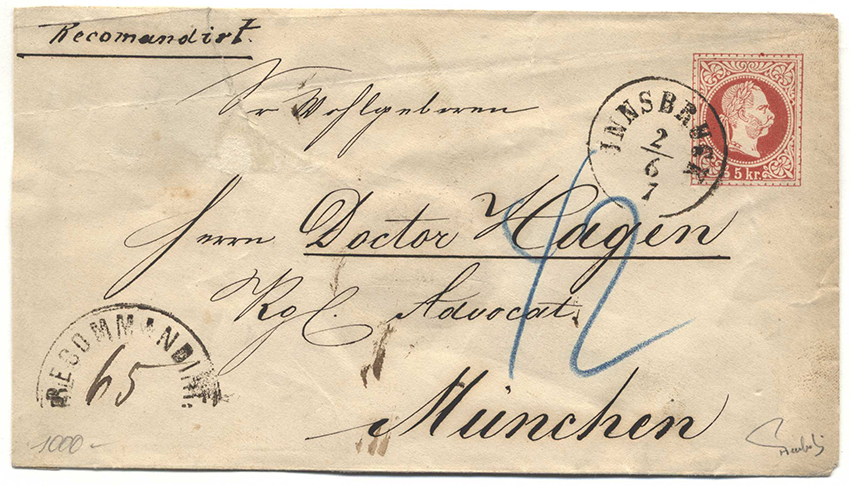 Recomandirt.
Sr Wohlgeboren
INNSBRUCK
2/6
1
5 kr.
Herrn Doctor Hagen
Kgl. Advocat
12
RECOMMANDIRT
65
München
1000 -